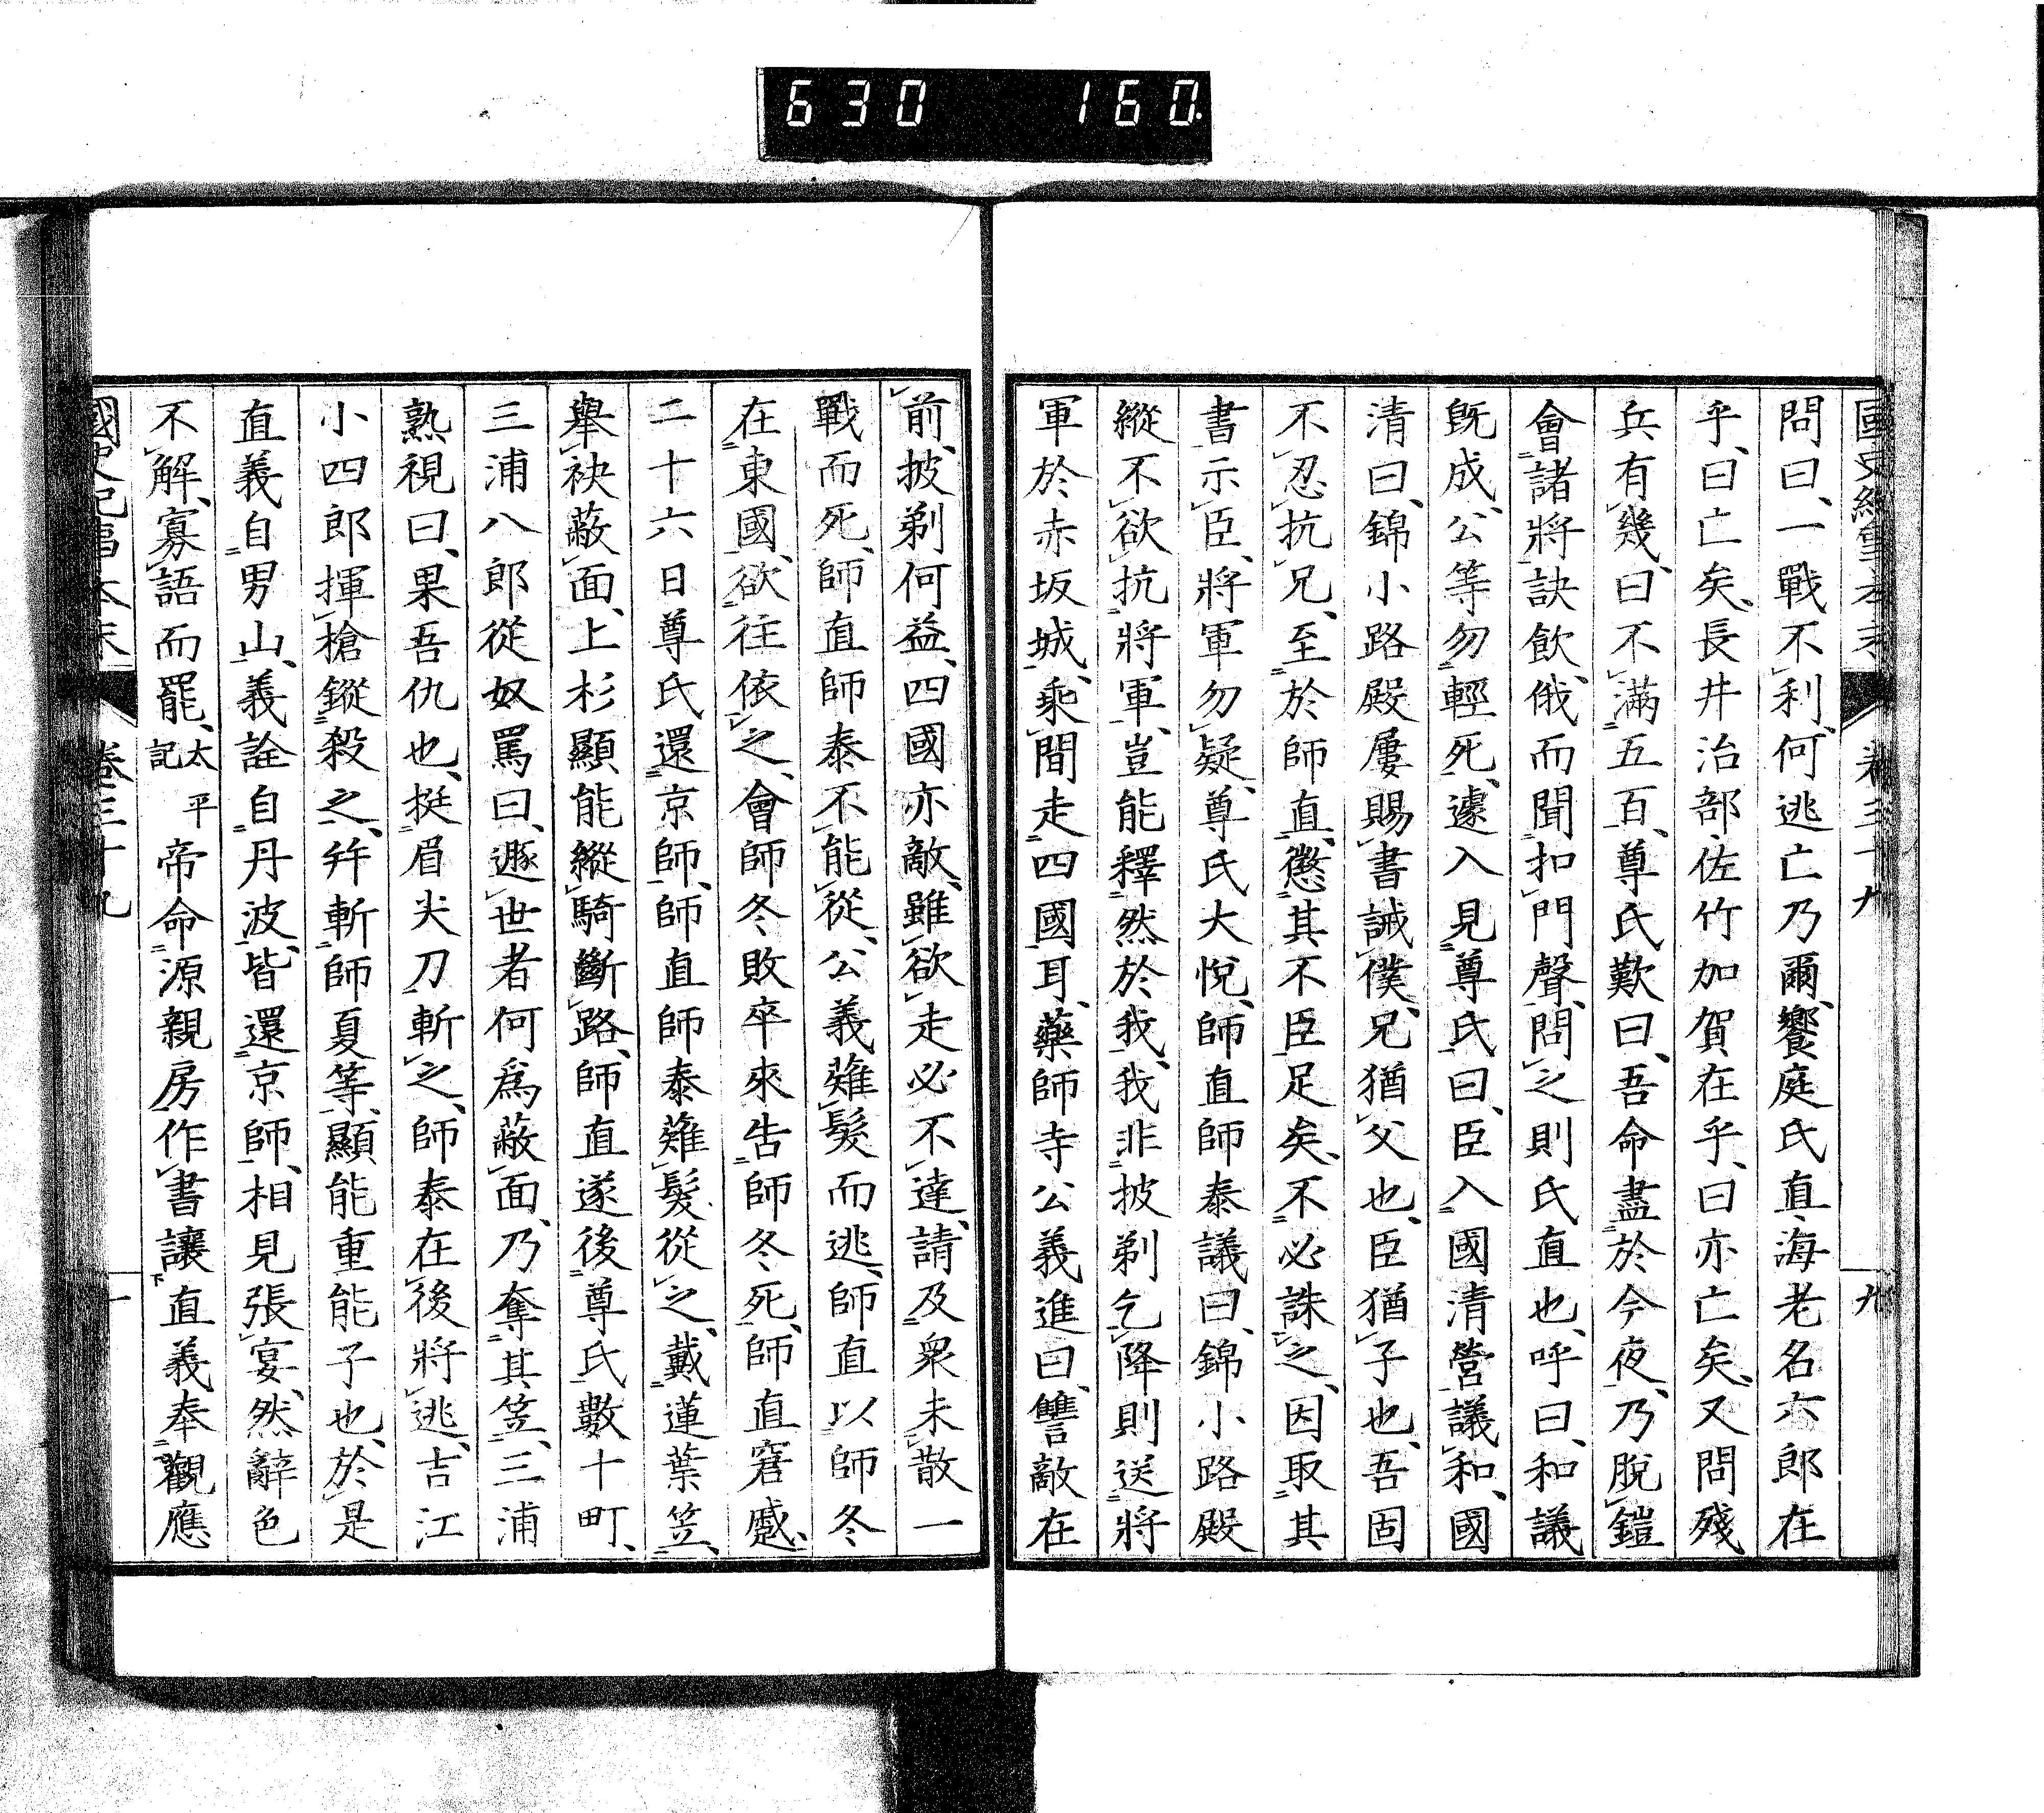 630 160
國史紀事本末 卷三十九 九
問曰、一戰不利、何逃亡乃爾、饗庭氏直海老名六郎在
乎、曰亡矣、長井治部佐竹加賀在乎、曰亦亡矣、又問殘
兵有幾、曰不滿五百、尊氏歎曰、吾命盡於今夜、乃脫鎧
會諸將訣飲、俄而聞扣門聲、問之則氏直也、呼曰、和議
既成、公等勿輕死、遽入見尊氏曰、臣入國清營議和、國
清曰、錦小路殿屢賜書誡僕、兄猶父也、臣猶子也、吾固
不忍抗兄、至於師直、懲其不臣足矣、不必誅之、因取其
書示臣、將軍勿疑、尊氏大悅、師直師泰議曰、錦小路殿
縱不欲抗將軍、豈能釋然於我、我非披剃乞降則送將
軍於赤坂城、乘間走四國耳、藥師寺公義進曰、讐敵在
前、披剃何益、四國亦敵、雖欲走必不達、請及衆未散一
戰而死、師直師泰不能從、公義薙髮而逃、師直以師冬
在東國、欲往依之、會師冬敗卒來告師冬死、師直窘蹙、
二十六日尊氏還京師、師直師泰薙髮從之、戴蓮葉笠、
舉袂蔽面、上杉顯能縱騎斷路、師直遂後尊氏數十町、
三浦八郎從奴罵曰、遯世者何爲蔽面、乃奪其笠、三浦
熟視曰、果吾仇也、挺眉尖刀斬之、師泰在後將逃、吉江
小四郎揮槍鏦殺之、幷斬師夏等、顯能重能子也、於是
直義自男山、義詮自丹波、皆還京師、相見張宴、然辭色
不解、寡語而罷、太平記 帝命源親房作書讓直義奉觀應
國史紀事本末 卷三十九 十